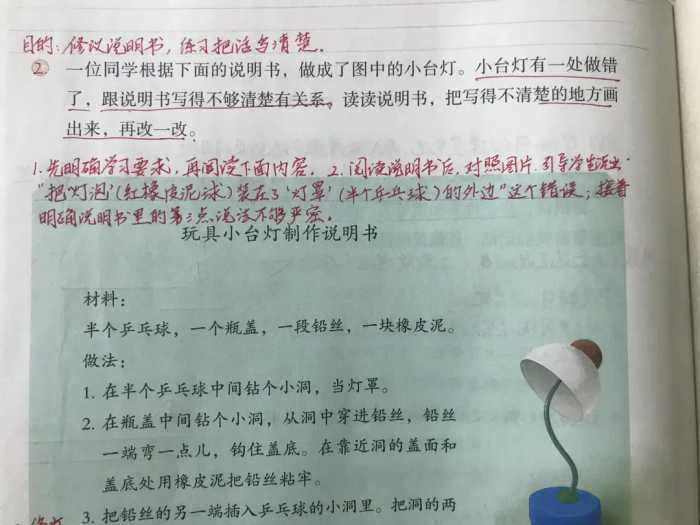 目的：修改说明书，练习把话写清楚。
② 一位同学根据下面的说明书，做成了图中的小台灯。小台灯有一处做错
了，跟说明书写得不够清楚有关系。读读说明书，把写得不清楚的地方画
出来，再改一改。
1. 先明确学习要求，再阅读下面内容。2. 阅读说明书后，对照图片，引导学生找出
"把'灯泡'(红橡皮泥球)装在了'灯罩'(半个乒乓球)的外边"这个错误；接着
明确说明书里的第3点说法不够严密。
玩具小台灯制作说明书
材料：
半个乒乓球，一个瓶盖，一段铅丝，一块橡皮泥。
做法：
1. 在半个乒乓球中间钻个小洞，当灯罩。
2. 在瓶盖中间钻个小洞，从洞中穿进铅丝，铅丝
一端弯一点儿，钩住盖底。在靠近洞的盖面和
盖底处用橡皮泥把铅丝粘牢。
3. 把铅丝的另一端插入乒乓球的小洞里。把洞的两